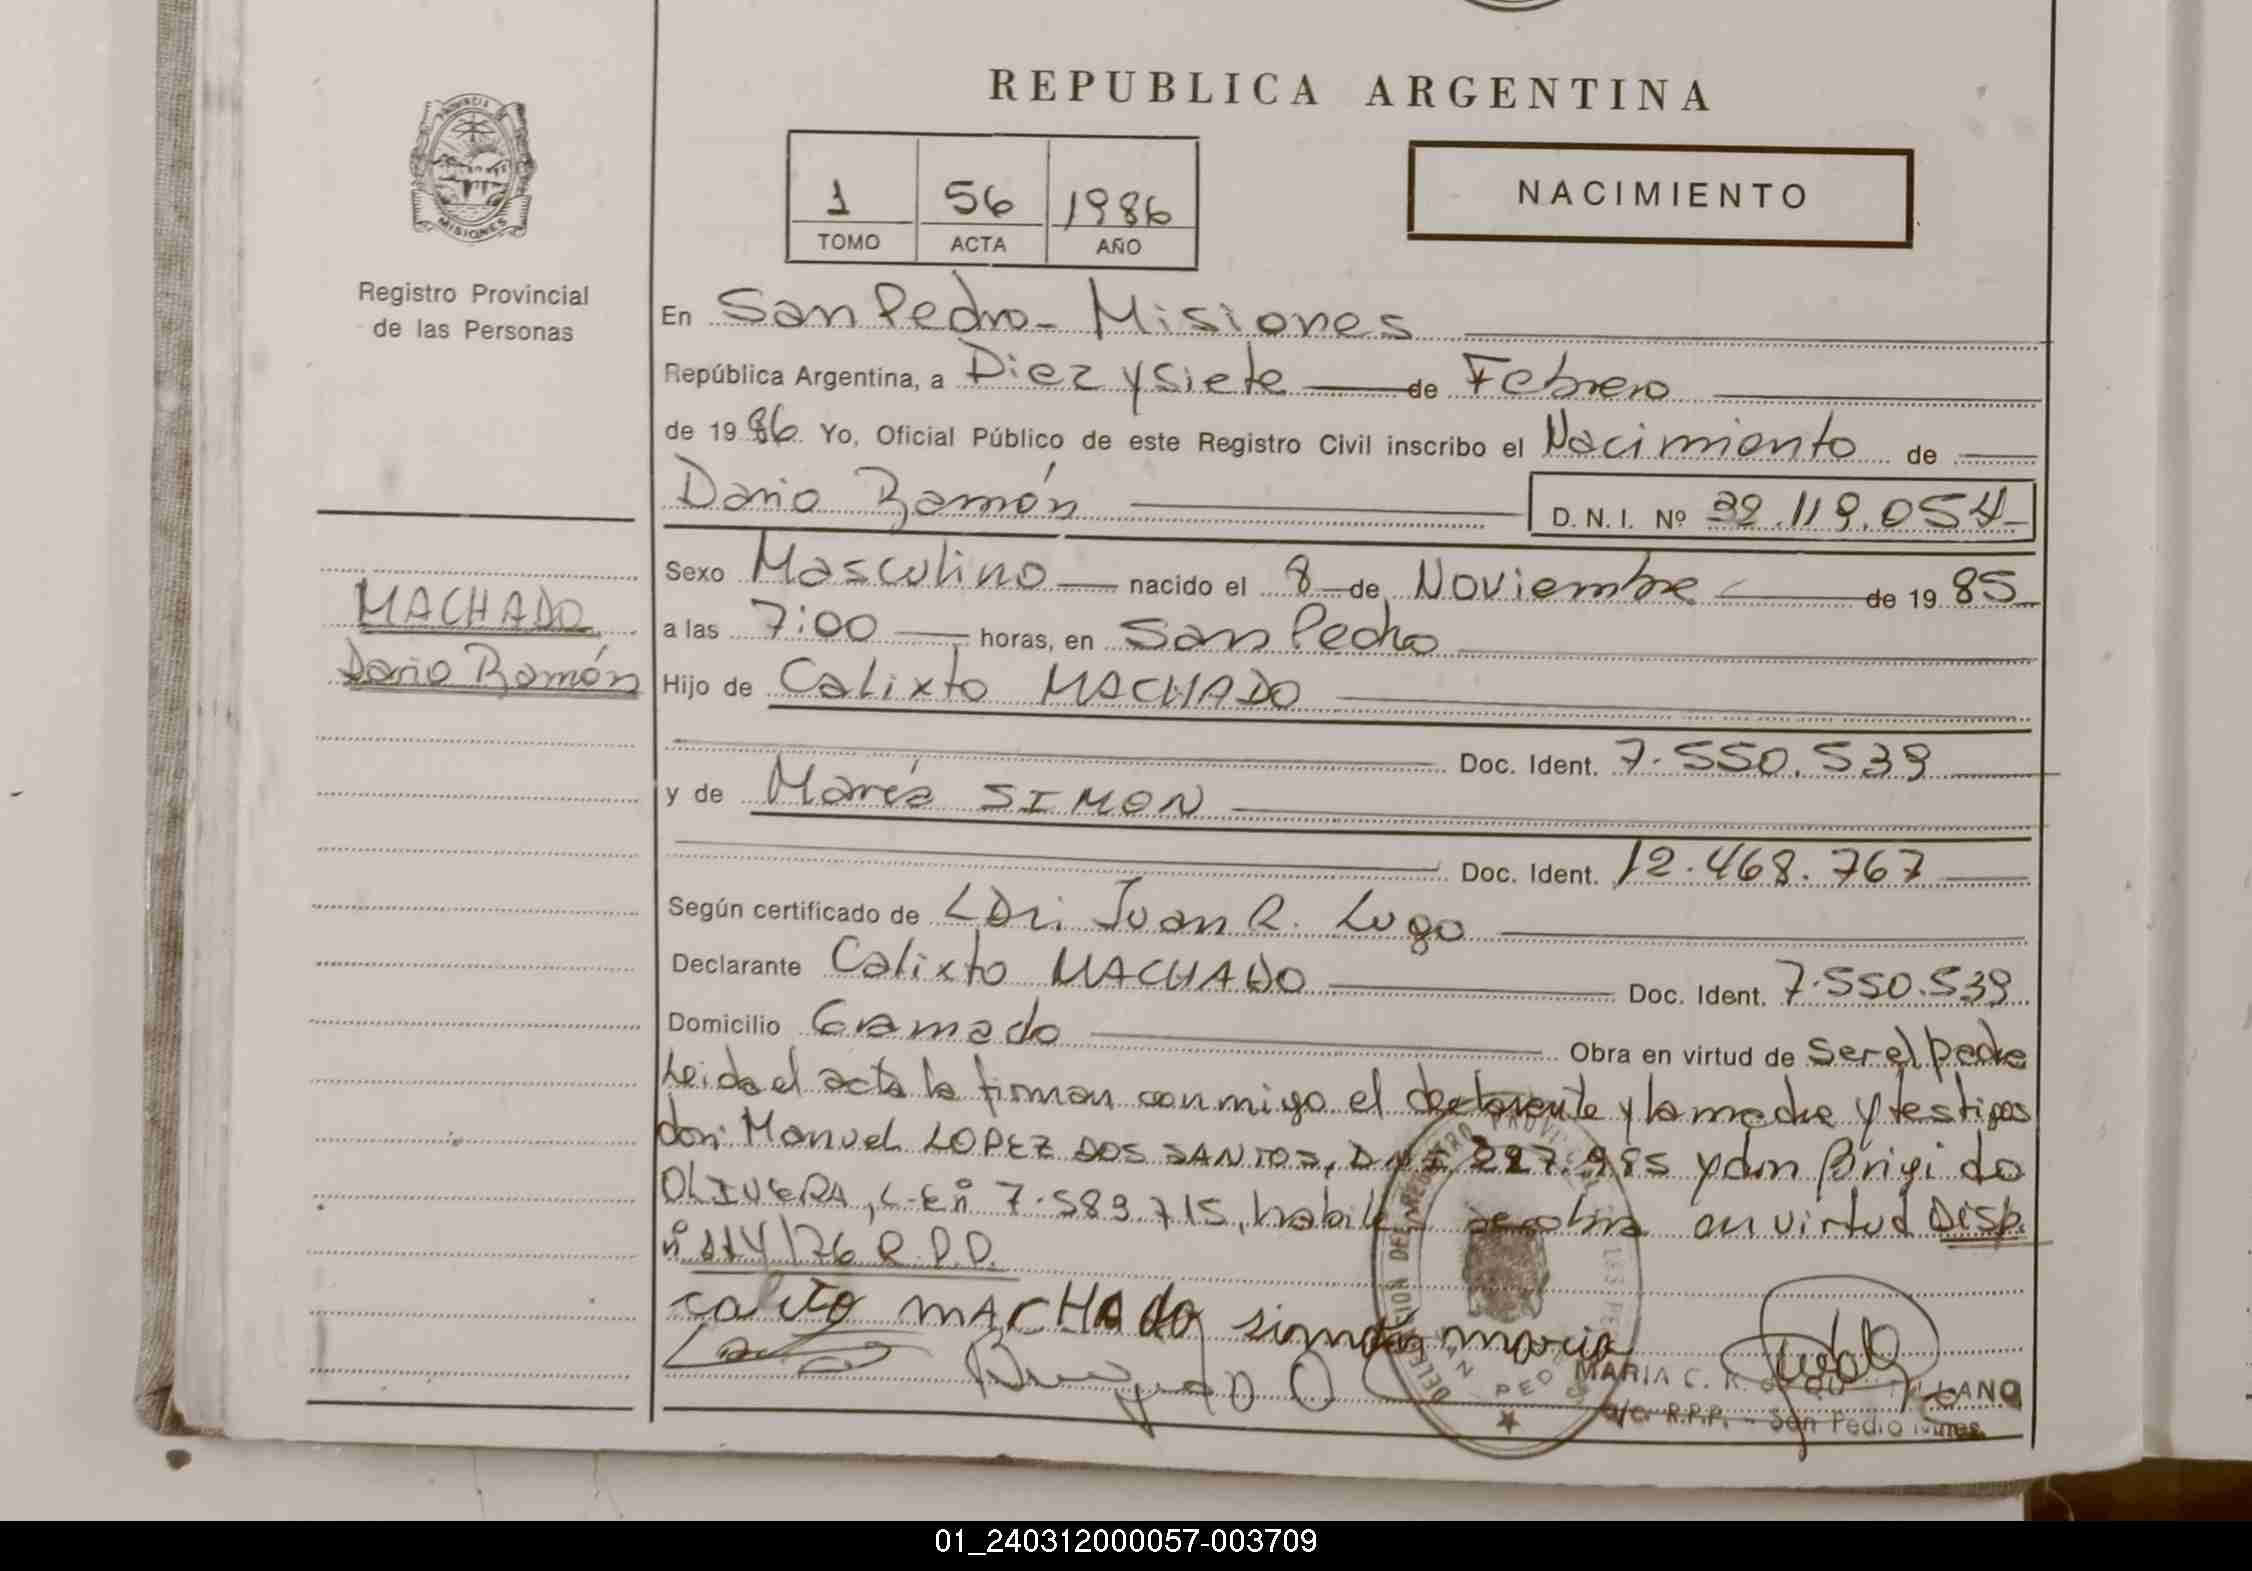 REPUBLICA ARGENTINA
PROVINCIA DE
MISIONES
Registro Provincial
de las Personas
1 56 1986
TOMO ACTA AÑO
NACIMIENTO
En San Pedro - Misiones
República Argentina, a Diez y siete de Febrero
de 1986. Yo, Oficial Público de este Registro Civil inscribo el Nacimiento de
Dario Ramón D. N. I. Nº 32.119.054
MACHADO
Dario Ramón
Sexo Masculino nacido el 8 de Noviembre de 1985
a las 7:00 horas, en San Pedro
Hijo de Calixto MACHADO
Doc. Ident. 7.550.539
y de María SIMON
Doc. Ident. 12.468.767
Según certificado de Juan R. Lugo
Declarante Calixto MACHADO Doc. Ident. 7.550.539
Domicilio Gramado Obra en virtud de Ser el padre
Leida el acta la firman conmigo el declarante y la madre y testigos
don: Manuel LOPEZ DOS SANTOS, y don Brigido
OLIVERA, L.E nº 7.589.715, en virtud Disp.
nº 114/76 R.P.P.
MACHAdo simon maria
MARIA C.
a/c. R.P.P. - San Pedro Mnes.
01_240312000057-003709